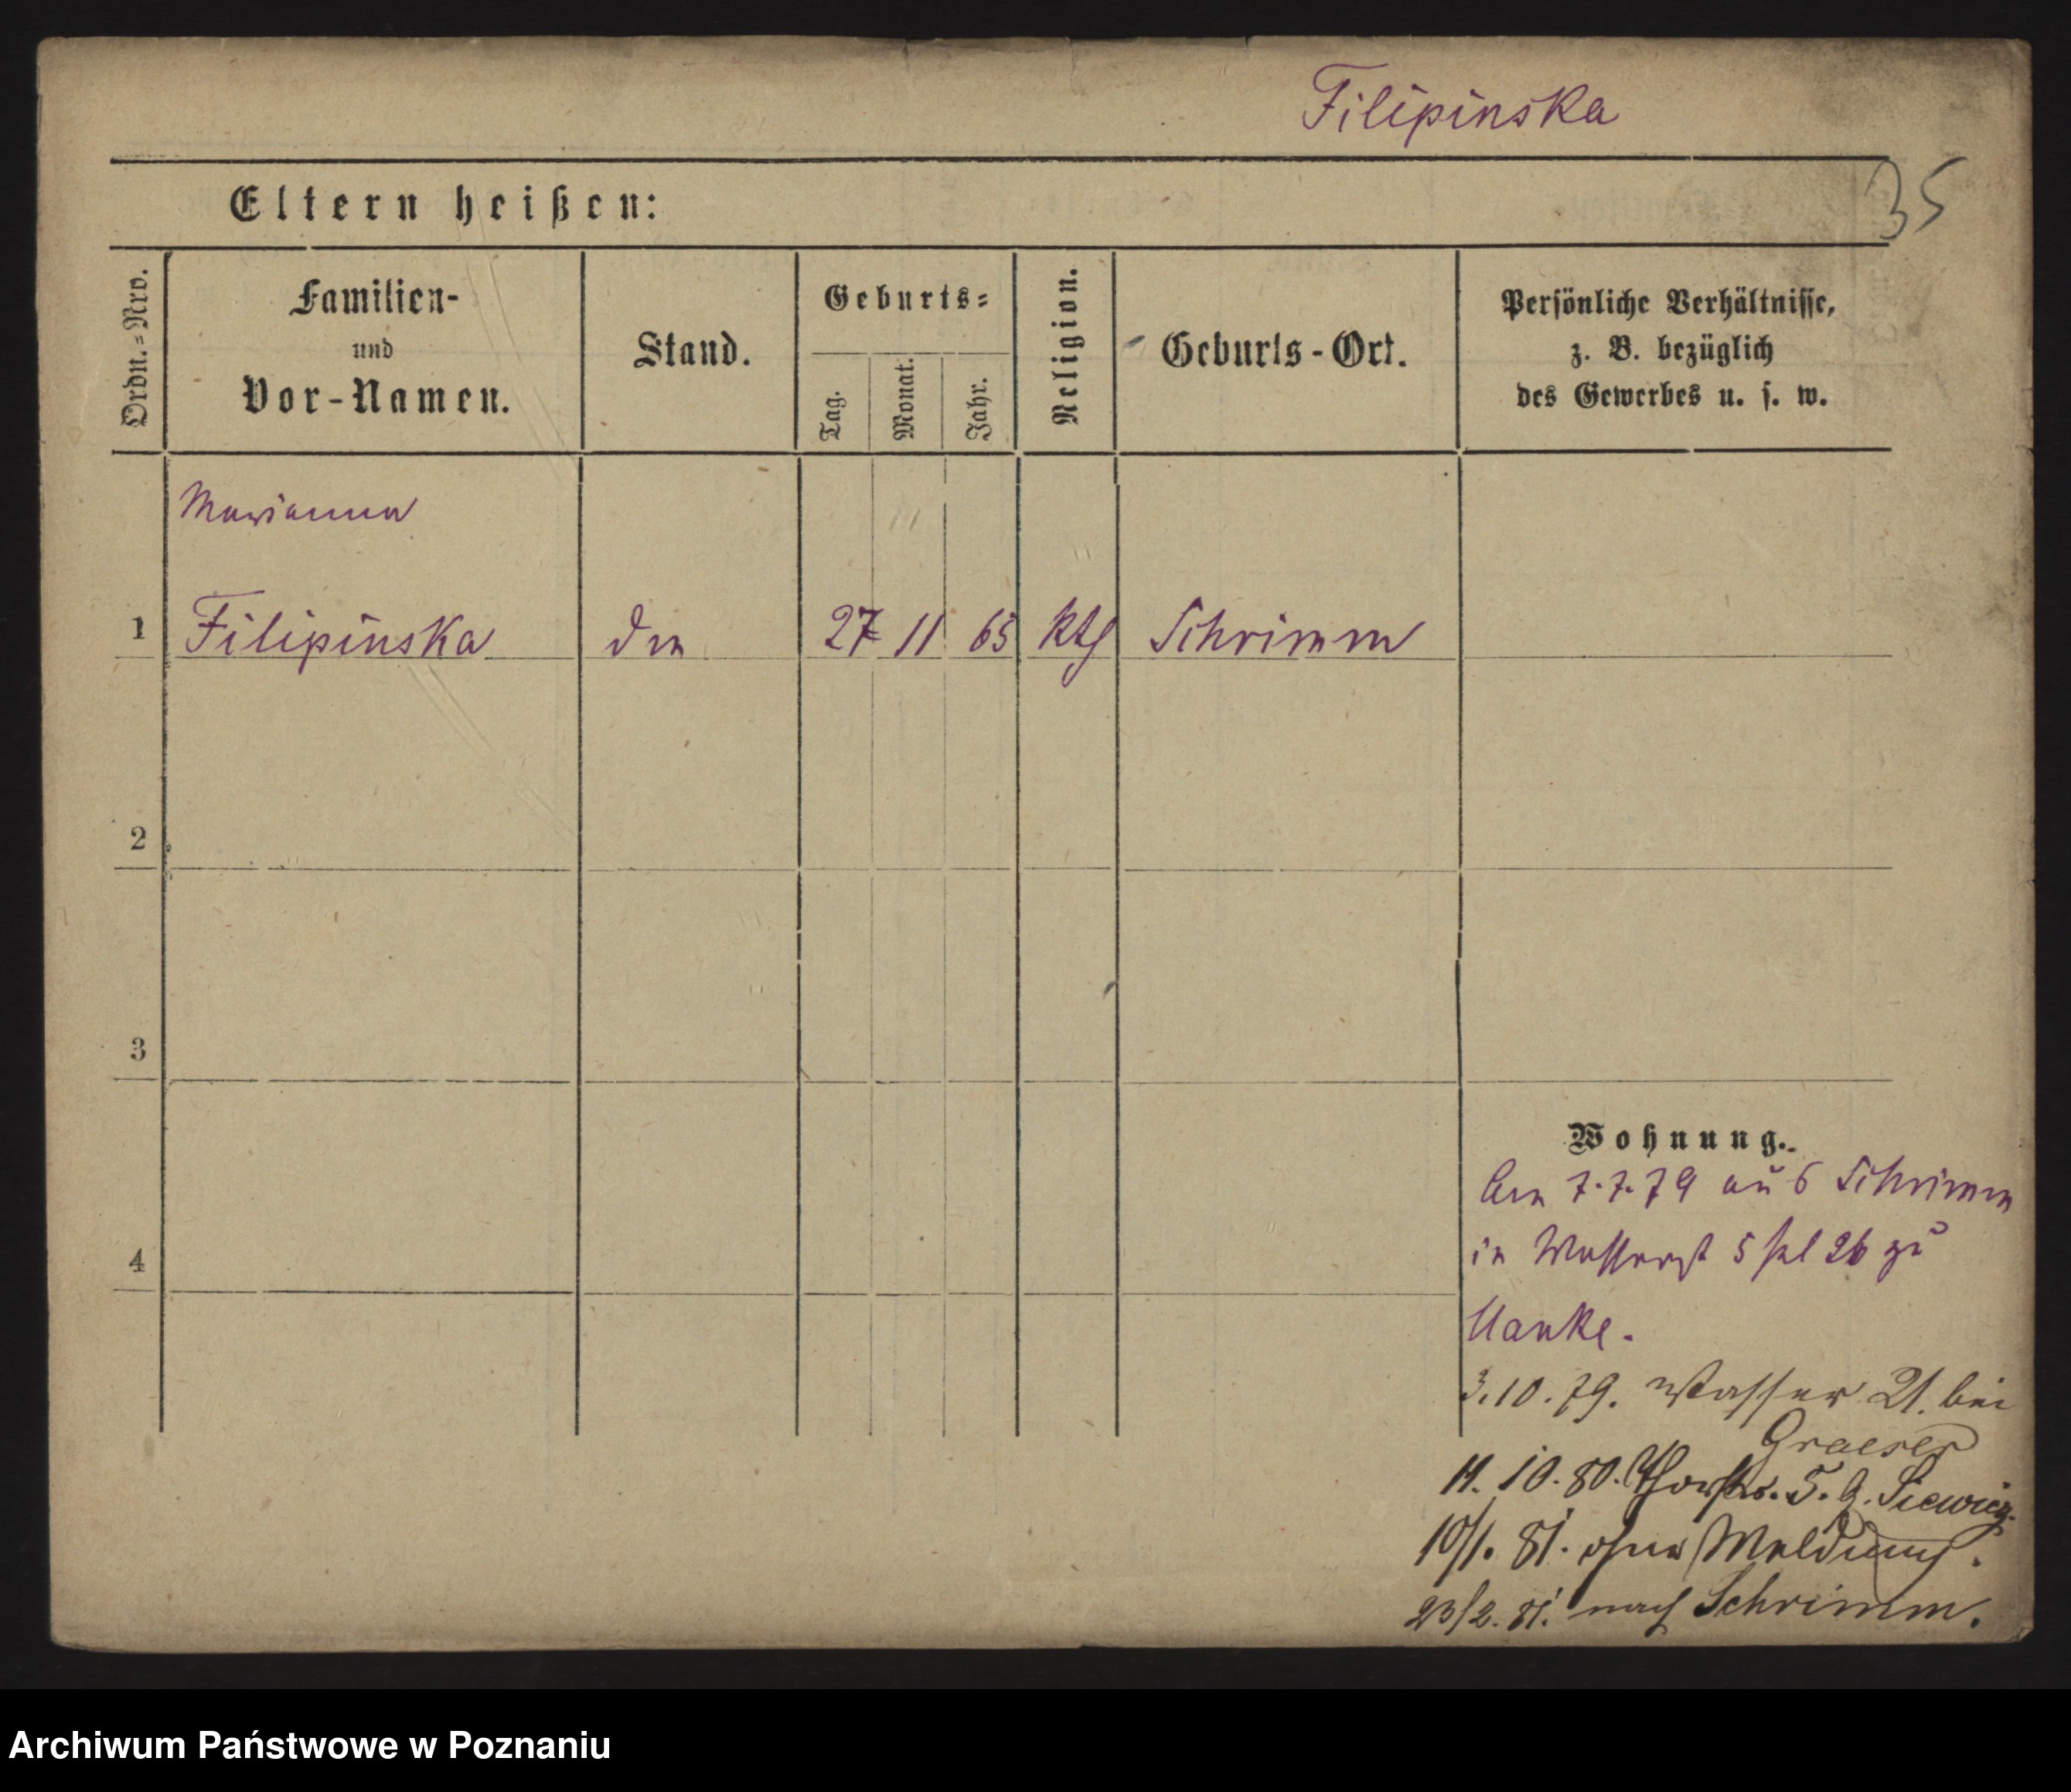 Filipinska
35
Eltern heißen:
Ordn.=Nro.
Familien-
und
Vor-Namen.
Stand.
Geburts=
Tag.
Monat.
Jahr.
Religion.
Geburts-Ort.
Persönliche Verhältnisse,
z. B. bezüglich
des Gewerbes u. s. w.
Marianna
1 Filipinska 27 11 65 kth Schrimm
2
3
4
Wohnung.
Am 7.7.79 aus Schrimm
in Wasserst 5 26 zu
Manke.
3.10.79. Wasser 21. bei
Graeser
11.10.80. 5. b. Siewicz.
10/1. 81. ohne Meldung.
23/2. 81. nach Schrimm.
Archiwum Państwowe w Poznaniu